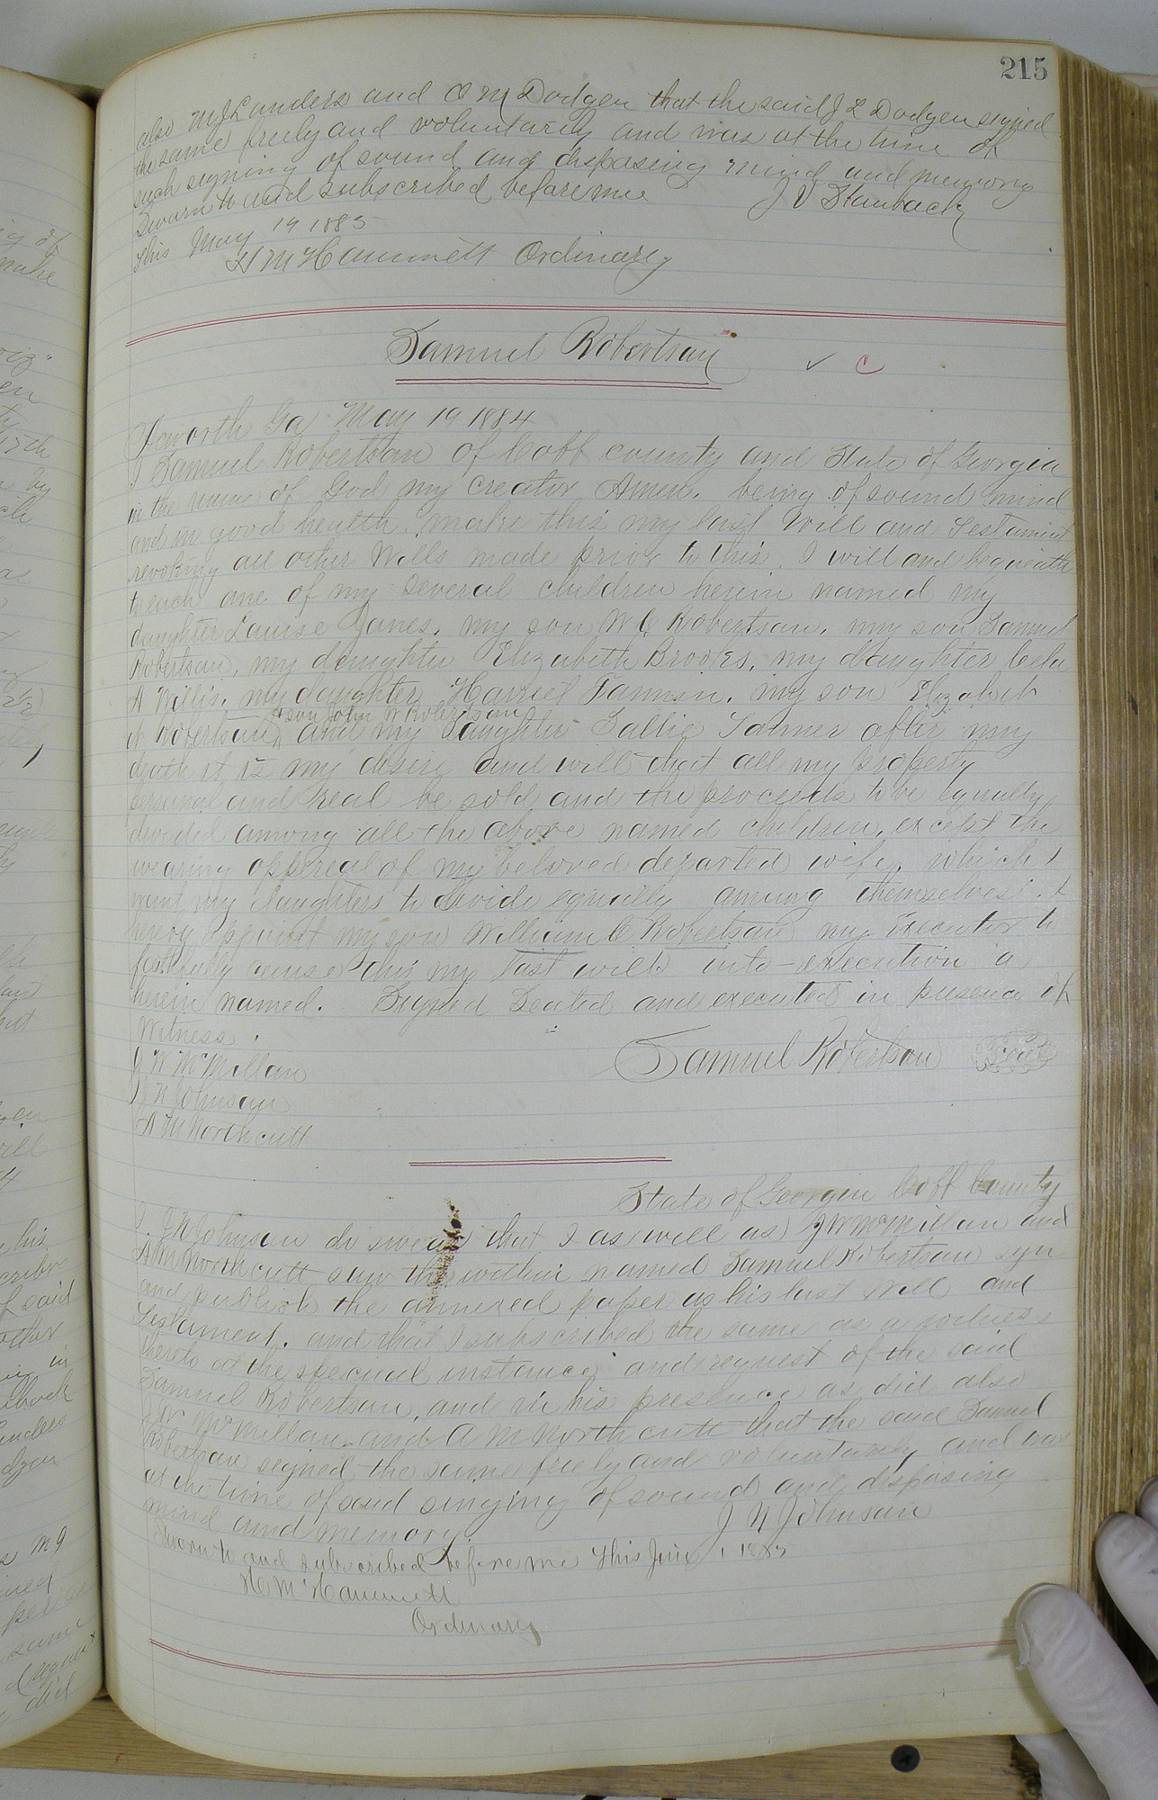 215
also M J Landers and O M Dodgen that the said J L Dodgen signed
the same freely and voluntarily and was at the time of
such signing of sound and disposing mind and memory
Sworn to and subscribed before me J V Stanback
this May 19 1885
H M Hammett Ordinary
Samuel Robertson ✓ C
Acworth Ga May 19 1884
I Samuel Robertson of Cobb county and State of Georgia
in the name of God my creator Amen. being of sound mind
and in good health. make this my last Will and Testament
revoking all other Wills made prior to this. I will and bequeath
to each one of my several children herein named my
daughter Louise Janes, my son W C Robertson, my son Samuel
Robertson, my daughter Elizabeth Brooks, my daughter Celia
A Willis, my daughter Harriet Tannin, my son Elizabeth
son John W Robertson
N Robertson, and my daughter Sallie Tanner after my
death it is my desire and will that all my property
personal and Real be sold and the proceeds to be equally
divided among all the above named children, except the
wearing appereal of my beloved departed wife, which I
want my daughters to divide equally among themselves. I
hereby appoint my son William C Robertson my Executor to
faithfully cause this my last will into execution as
herein named. Signed Sealed and executed in presence of
Witness.
J W McMillan Samuel Robertson Seal
J N Johnson
A M Northcutt
State of Georgia Cobb County
I J N Johnson do swear that I as well as J W McMillan and
A M Northcutt saw the within named Samuel Robertson sign
and publish the annexed paper as his last Will and
Testament, and that I subscribed the same as a witness
thereto at the special instance and request of the said
Samuel Robertson, and in his presence as did also
J W McMillan and A M Northcutt that the said Samuel
Robertson signed the same freely and voluntarily and was
at the time of said singing of sound and disposing
mind and memory. J N Johnson
Sworn to and subscribed before me this June 1 1885
H M Hammett
Ordinary